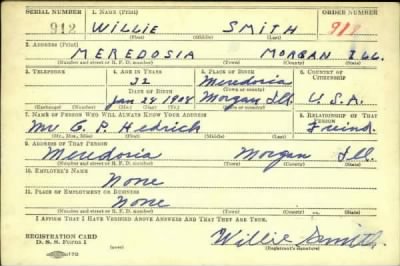 SERIAL NUMBER 1. NAME (Print) ORDER NUMBER
912 WILLIE SMITH
(First) (Middle) (Last)
2. ADDRESS (Print)
MEREDOSIA MORGAN ILL.
(Number and street or R. F. D. number) (Town) (County) (State)
3. TELEPHONE 4. AGE IN YEARS 5. PLACE OF BIRTH 6. COUNTRY OF CITIZENSHIP
32 Meredosia
DATE OF BIRTH (Town or county)
Jan 28 1908 Morgan Ill. U.S.A.
(Exchange) (Number) (Mo.) (Day) (Yr.) (State or country)
7. NAME OF PERSON WHO WILL ALWAYS KNOW YOUR ADDRESS 8. RELATIONSHIP OF THAT PERSON
Mr G. P. Hedrich Friend
(Mr., Mrs., Miss) (First) (Middle) (Last)
9. ADDRESS OF THAT PERSON
Meredosia Morgan Ill.
(Number and street or R. F. D. number) (Town) (County) (State)
10. EMPLOYER'S NAME
None
11. PLACE OF EMPLOYMENT OR BUSINESS
None
(Number and street or R. F. D. number) (Town) (County) (State)
I AFFIRM THAT I HAVE VERIFIED ABOVE ANSWERS AND THAT THEY ARE TRUE.
REGISTRATION CARD
D. S. S. Form 1 Willie Smith
(Registrant's signature)